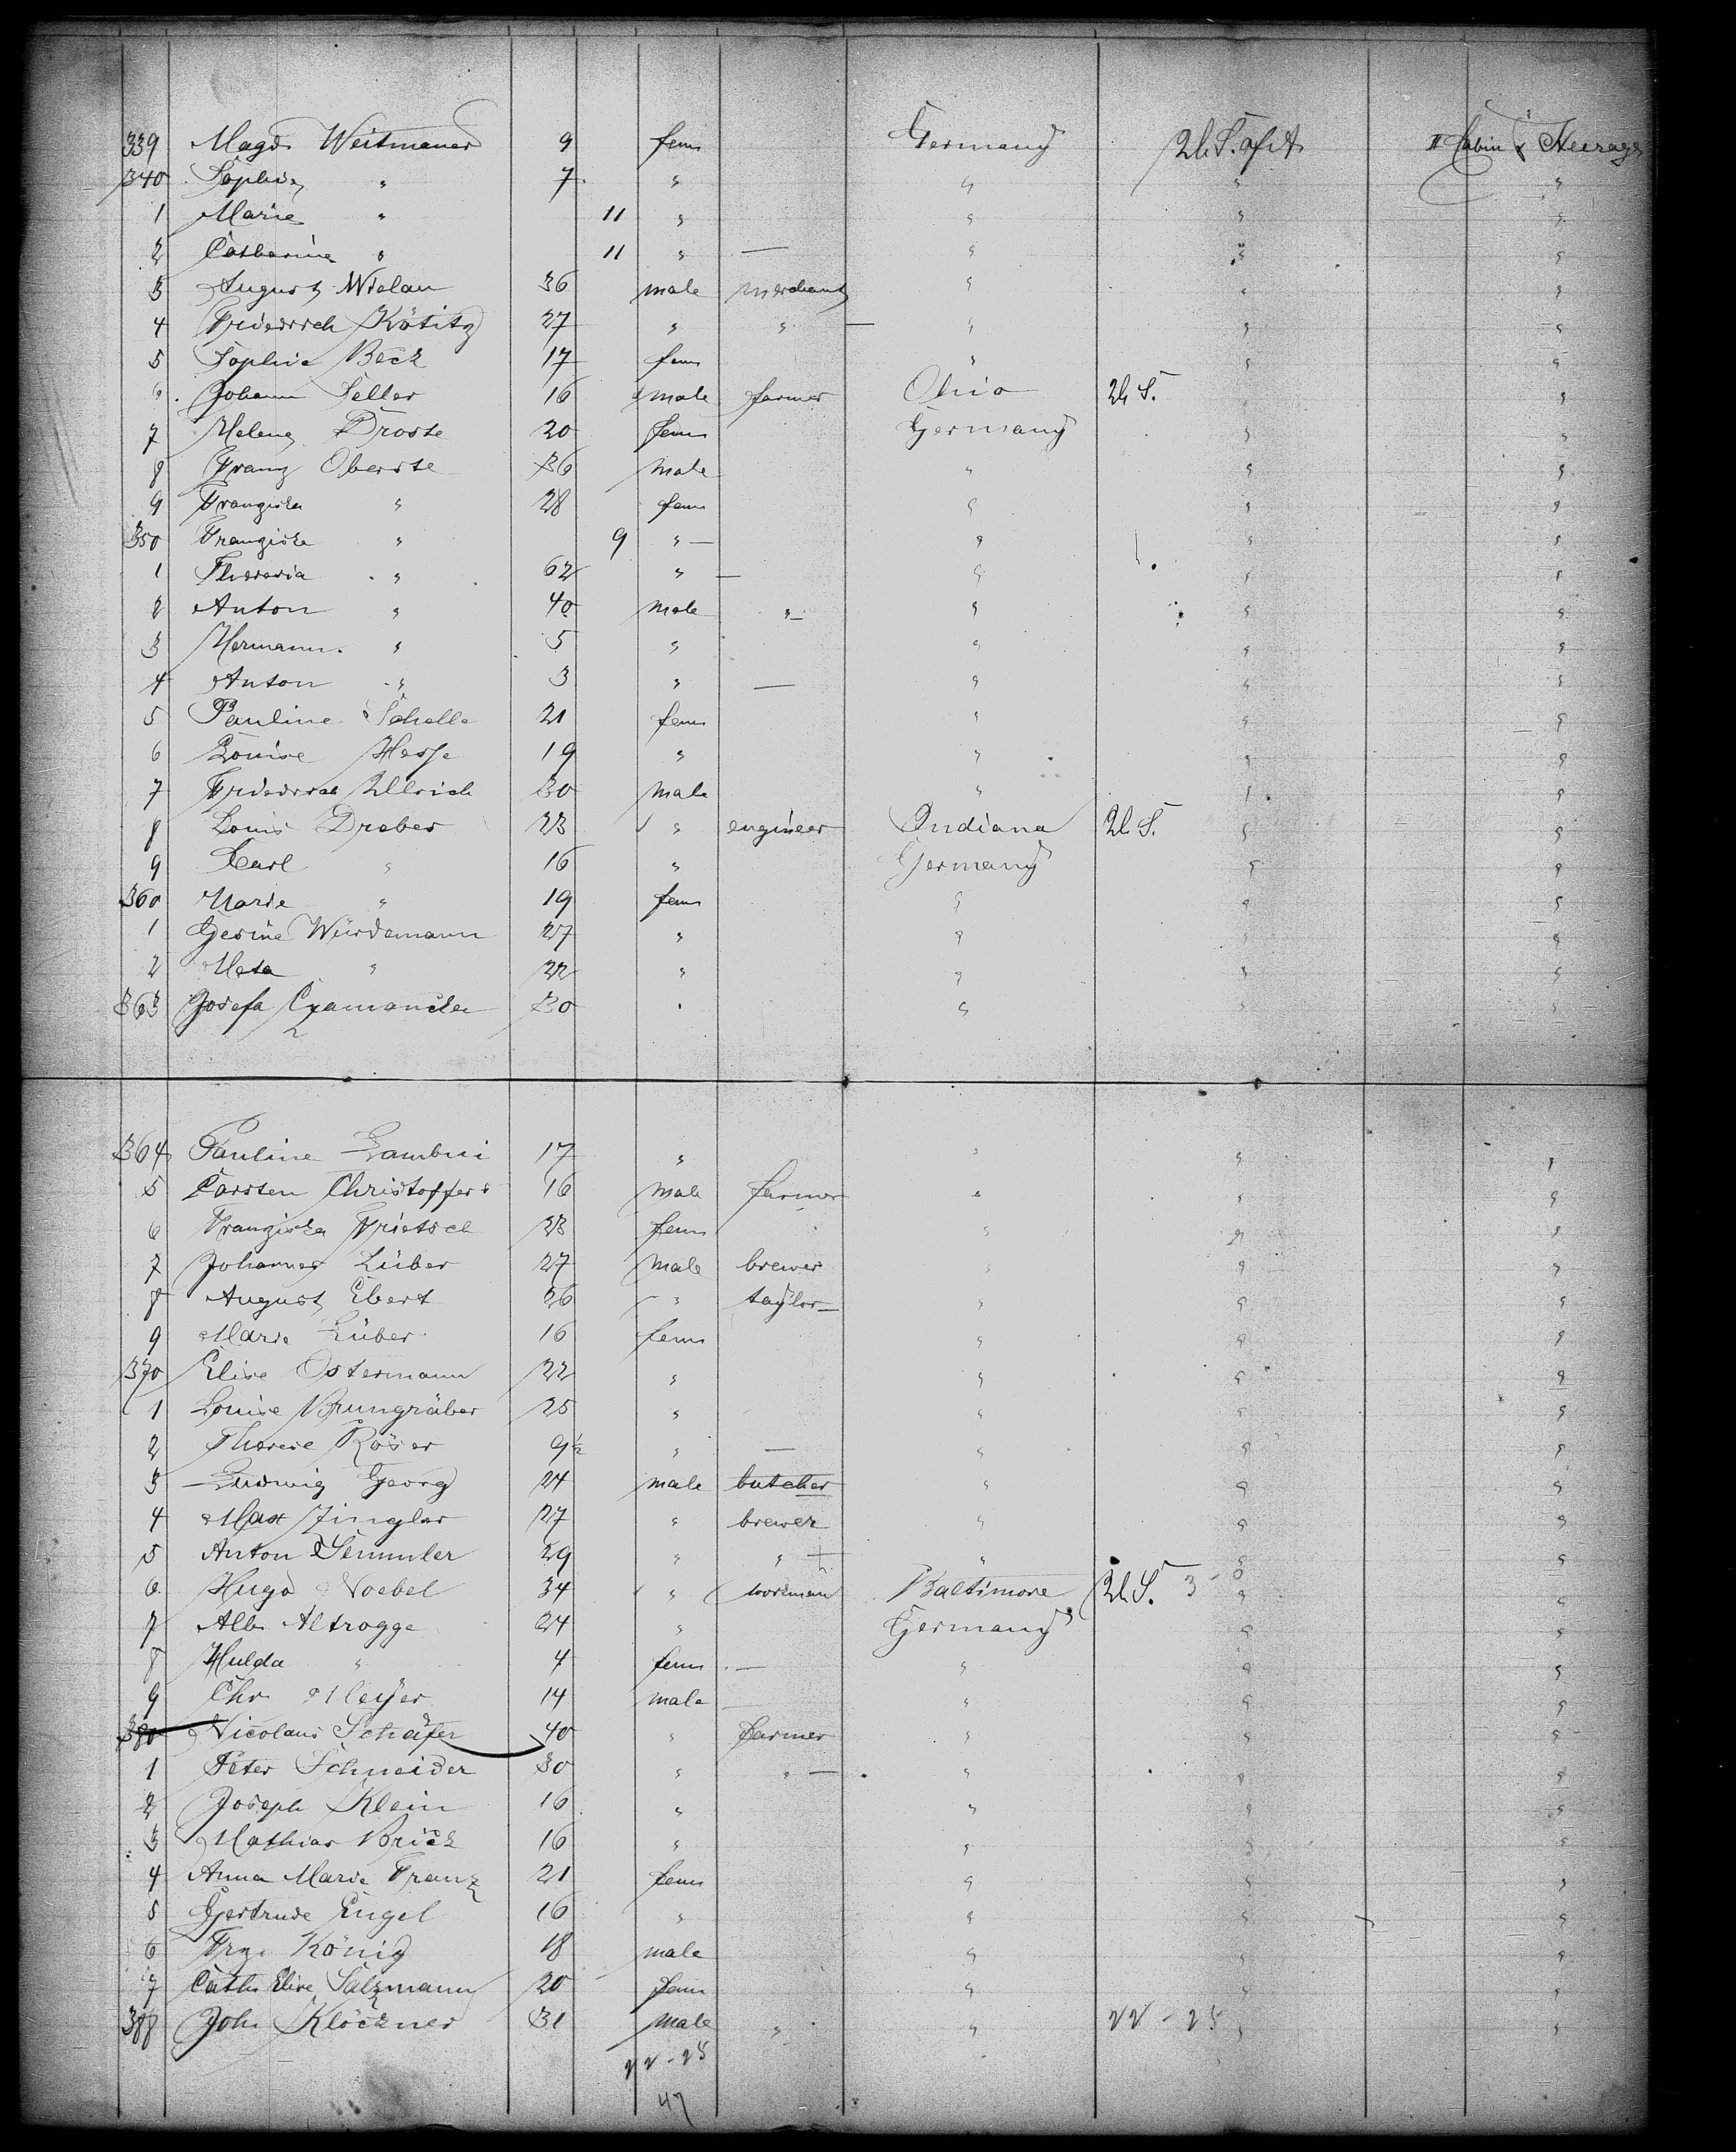 339 Magd. Weitmauer 9 fem Germany U.S. of A II Cabin & Steerage
340 Sophie " 7 " " " "
1 Marie " 11 " " " "
2 Catharine " 11 " — " " "
3 August Wielan 36 male merchant " " "
4 Friedrich Kötitz 27 " " — " " "
5 Sophie Beck 17 fem " " "
6 Johann Seller 16 male farmer Ohio U.S. " "
7 Helene Droste 20 fem Germany " "
8 Franz Oberste 36 male " " "
9 Franziska " 28 fem " " "
350 Franziska " 9 " — " " "
1 Theresia " 62 " — " " "
2 Anton " 40 male " " " "
3 Hermann " 5 " " " "
4 Anton " 3 " — " " "
5 Pauline Schelle 21 fem " " "
6 Louise Hesse 19 " " " "
7 Friedrich Ullrich 30 male " " "
8 Louis Dreber 23 " engineer Indiana U.S. " "
9 Carl " 16 " Germany " "
360 Marie " 19 fem " " "
1 Gesine Würdemann 27 " " " "
2 Meta " 22 " " " "
363 Josefa 30 " " " "
364 Pauline 17 " " " "
5 Carsten Christoffers 16 male farmer " " "
6 Franziska Frietsch 23 fem " " "
7 Johannes Lüber 27 male brewer " " "
8 August Ebert 26 " taylor — " " "
9 Marie Lüber 16 fem " " "
370 Elise Ostermann 22 " " " "
1 Louise Brungräber 25 " " " "
2 Therese Röser 9½ " — " " "
3 Ludwig Georg 24 male butcher " " "
4 Max Zingler 27 " brewer " " "
5 Anton Semmler 29 " " " " "
6 Hugo Noebel 34 " workman Baltimore U.S. 3 - 0 " "
7 Alb. Altrogge 24 " Germany " "
8 Hulda " 4 fem — " " "
9 Chr. Meyer 14 male " " "
380 Nicolaus Schäfer 40 " farmer " " "
1 Peter Schneider 30 " " — " " "
2 Joseph Klein 16 " " " "
3 Mathias Brick 16 " " " "
4 Anna Marie Franz 21 fem " " "
5 Gertrude Engel 16 " " " "
6 Frz. König 18 male " " "
7 Cath. Elise Salzmann 20 fem " " "
388 Joh. Klöckner 31 male " " 22 - 25 " "
22 - 25
47